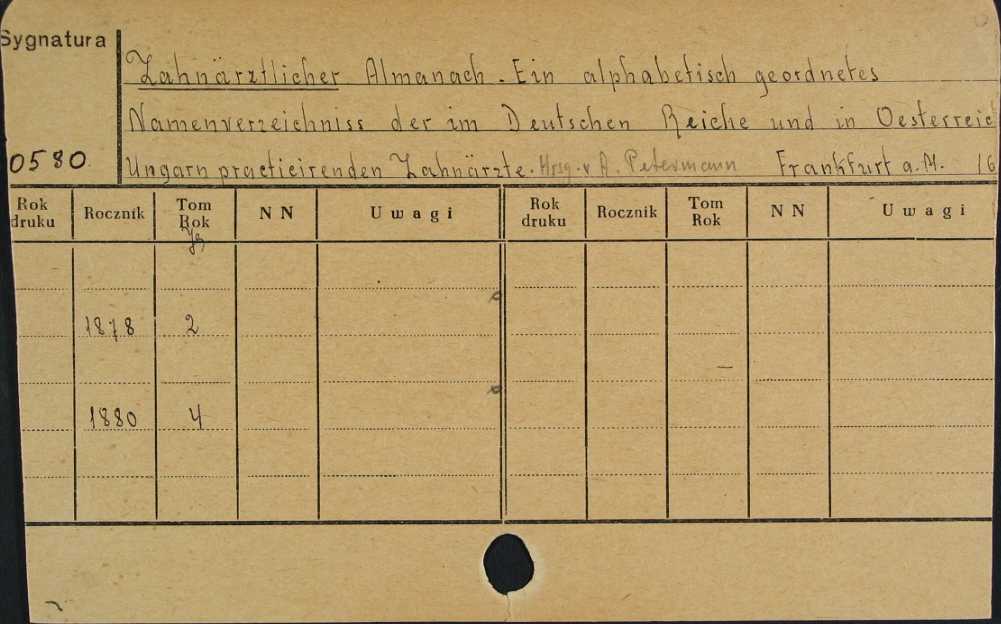 Sygnatura
Zahnärztlicher Almanach. Ein alphabetisch geordnetes
Namenverzeichniss der im Deutschen Reiche und in Oesterreic
0580 Ungarn practicirenden Zahnärzte. Hrsg. v A. Petermann Frankfurt a. M. 16
Rok druku Rocznik Tom Rok NN Uwagi Rok druku Rocznik Tom Rok NN Uwagi
1878 2
1880 4